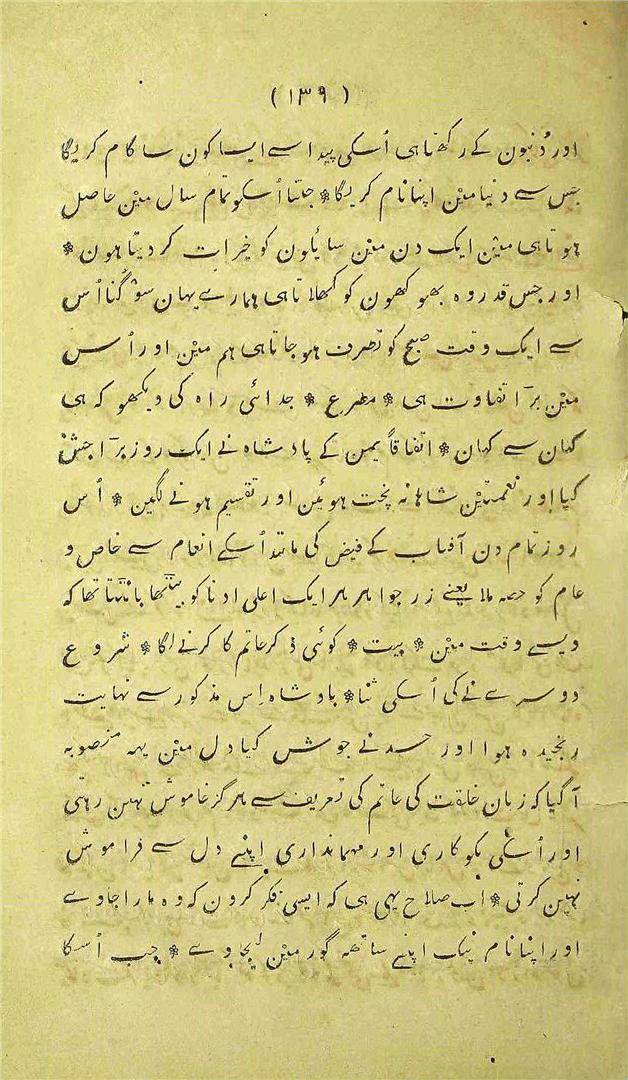 ( ۱۳۹ )
اور دُنبون کے رکھتا ہی اُسکی پیدا سے ایسا کون سا کام کریگا
جس سے دنیا مین اپنا نام کریگا * جتنا اُسکو تمام سال مین حاصل
ہوتا ہی مین ایک دن مین سائلون کو خیرات کر دیتا ہون *
اور جس قدر وہ بھوکھون کو کھلاتا ہی ہمارے یہان سو گنا اُس
سے ایک وقت صبح کو تصرف ہو جاتا ہی ہم مین اور اُس
مین بڑا تفاوت ہی * مصرع * جدائی راہ کی دیکھو کہ ہی
کہان سے کہان * اتفاقاً یمن کے پادشاہ نے ایک روز بڑا جشن
کیا اور نعمتین شاہانہ پخت ہوئین اور تقسیم ہونے لگین * اُس
روز تمام دن آفتاب کے فیض کی مانند اُسکے انعام سے خاص و
عام کو حصہ ملا یعنے زر جواہر ہر ایک اعلی ادنا کو بیٹھا بانٹتا تھا کہ
ویسے وقت مین * بیت * کوئی ذکر حاتم کا کرنے لگا * شروع
دوسرے نے کی اُسکی ثنا * بادشاہ اِس مذکور سے نہایت
رنجیدہ ہوا اور حسد نے جوش کیا دل مین یہہ منصوبہ
آ گیا کہ زبان خلقت کی حاتم کی تعریف سے ہرگز خاموش نہین رہتی
اور اُسکی نکوکاری اور مہمانداری اپنے دل سے فراموش
نہین کرتی * اب صلاح یہی ہی کہ ایسی فکر کرون کہ وہ مارا جاوے
اور اپنا نام نیک اپنے ساتھہ گور مین لیجاوے * جب اُسکا